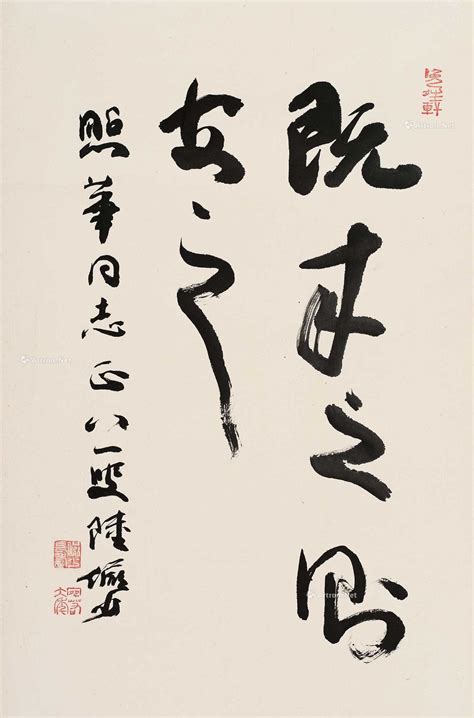 既来之则
安之
照华同志正 八一夏 陆俨少
Artron.Net